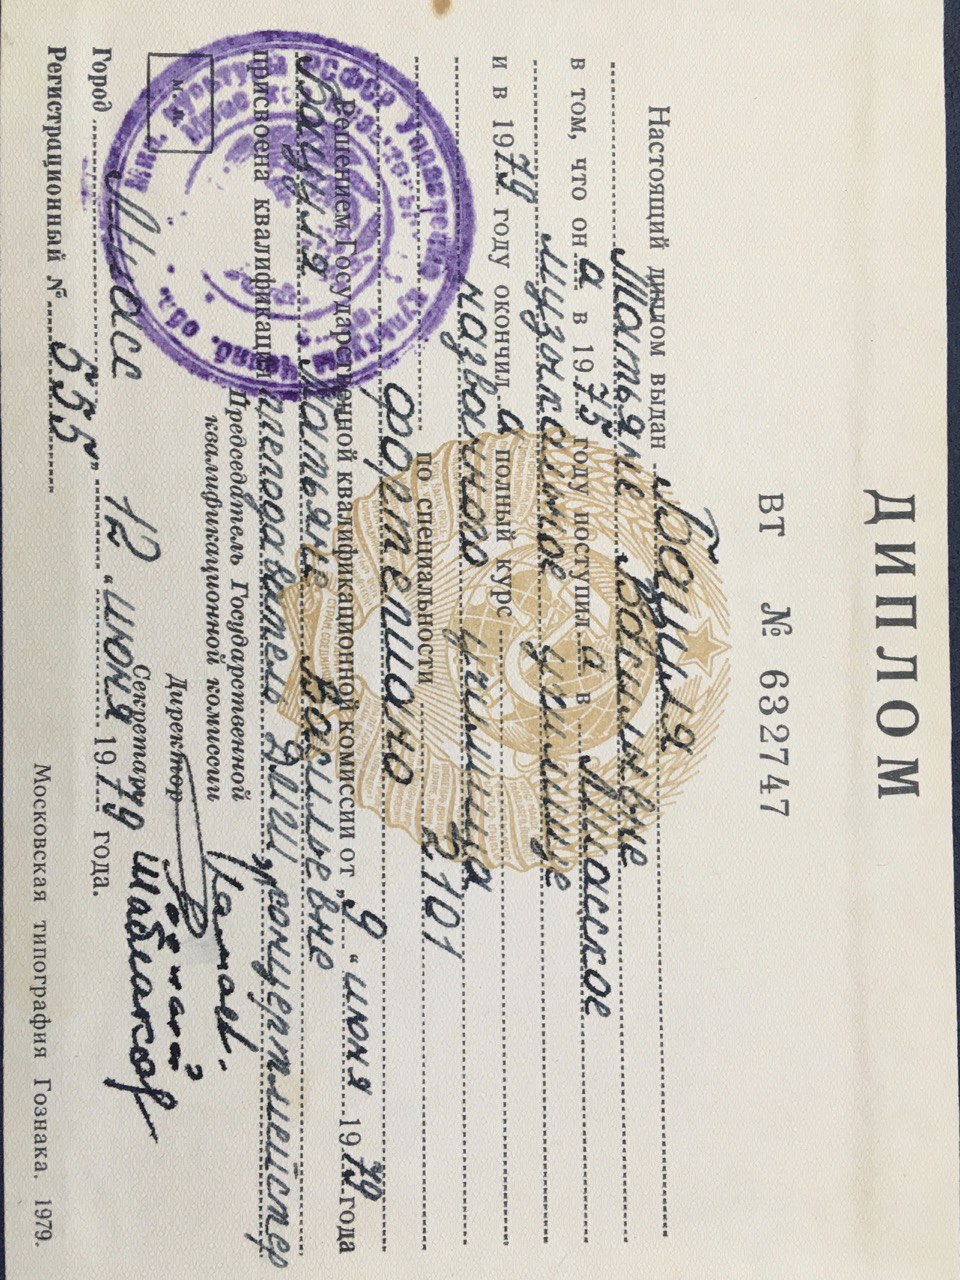 ДИПЛОМ
ВТ № 632747
Настоящий диплом выдан Бацуля
Татьяне Васильевне
в том, что он а в 1975 году поступил а в Миасское
музыкальное училище
и в 1979 году окончил а полный курс
названного училища
по специальности 2101
фортепиано
Решением Государственной квалификационной комиссии от „9“ июня 1979 года
Бацуля Татьяне Васильевне
присвоена квалификация преподаватель ДМШ, концертмейстер
Председатель Государственной
квалификационной комиссии
М. П.
Директор
Секретарь
Город Миасс „12“ июня 1979 года.
Регистрационный № 555
Московская типография Гознака. 1979.
Мин. культуры РСФСР Управление культуры Челяб. обл.